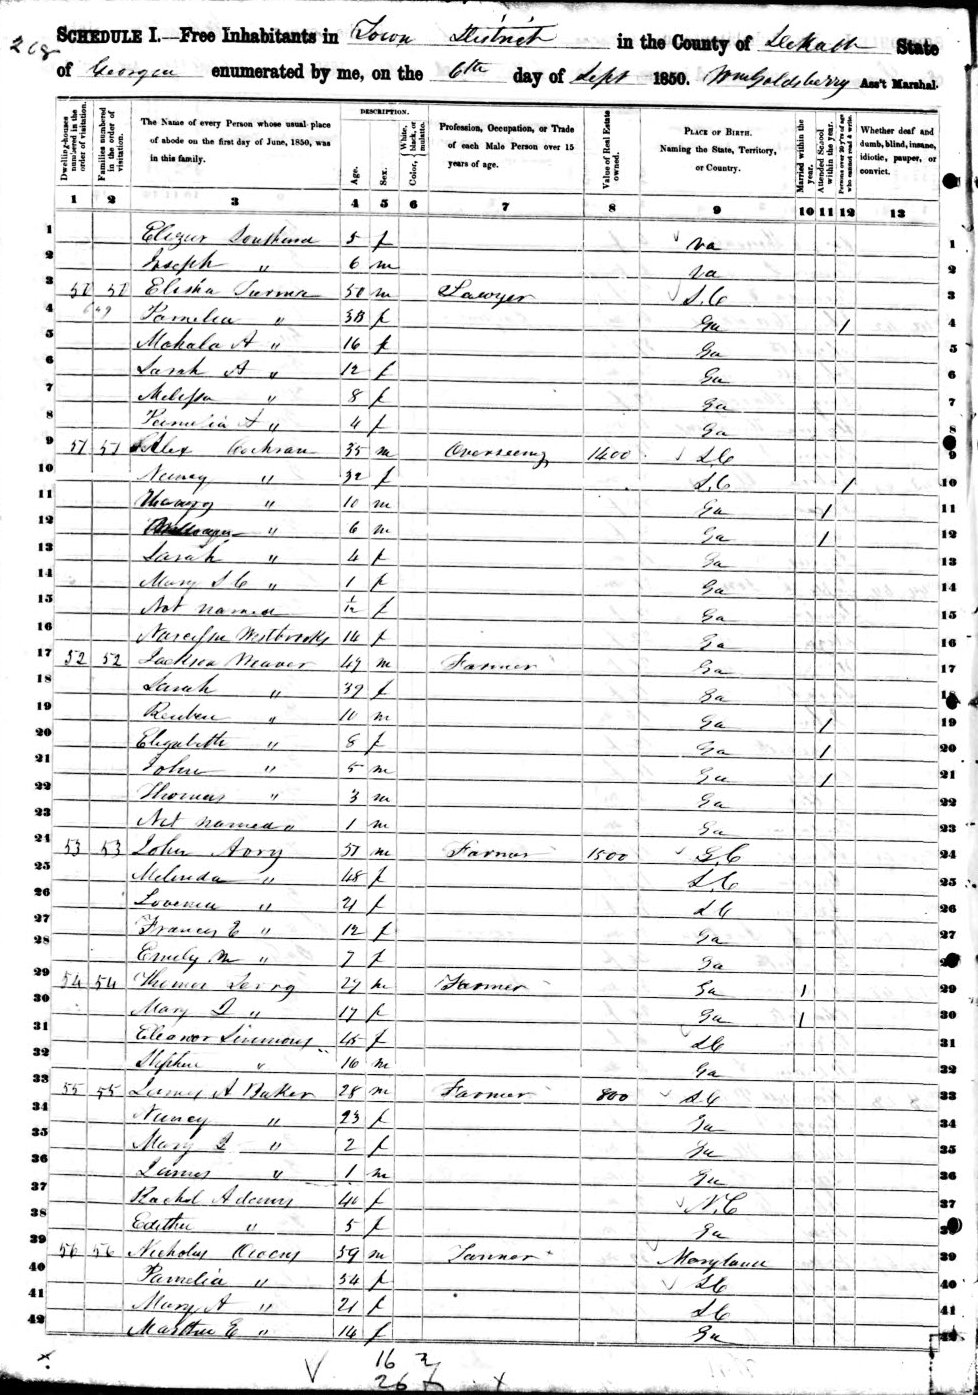 268
SCHEDULE I.—Free Inhabitants in Town District in the County of DeKalb State
of Georgia enumerated by me, on the 6th day of Sept 1850. Wm Goldsberry Ass't Marshal.
Dwelling-houses numbered in the order of visitation.
Families numbered in the order of visitation.
The Name of every Person whose usual place of abode on the first day of June, 1850, was in this family.
DESCRIPTION.
Age.
Sex.
Color, { White, black, or mulatto.
Profession, Occupation, or Trade of each Male Person over 15 years of age.
Value of Real Estate owned.
PLACE OF BIRTH. Naming the State, Territory, or Country.
Married within the year.
Attended School within the year.
Persons over 20 y'rs of age who cannot read & write.
Whether deaf and dumb, blind, insane, idiotic, pauper, or convict.
1 2 3 4 5 6 7 8 9 10 11 12 13
1 5 f Va 1
2 Joseph " 6 m Va 2
3 51 51 Elisha 50 m Lawyer S.C 3
4 Pamelia " 38 f Ga 1 4
5 Mahala A " 16 f Ga 5
6 Sarah A " 12 f Ga 6
7 Melissa " 8 f Ga 7
8 Pamelia A " 4 f Ga 8
9 51 51 Alex Cochran 35 m Overseeing 1400 S.C 9
10 Nancy " 32 f S.C 1 10
11 " 10 m Ga 1 11
12 " 6 m Ga 1 12
13 Sarah " 4 f Ga 13
14 Mary S C " 1 f Ga 14
15 Not named 1/12 f Ga 15
16 Narcissa Westbrooks 14 f Ga 16
17 52 52 Jackson Weaver 49 m Farmer Ga 17
18 Sarah " 39 f Ga 18
19 Reuben " 10 m Ga 1 19
20 Elizabeth " 8 f Ga 1 20
21 John " 5 m Ga 1 21
22 Thomas " 3 m Ga 22
23 Not named " 1 m Ga 23
24 53 53 John Avry 51 m Farmer 1500 S.C 24
25 Melinda " 48 f S.C 25
26 Lovenia " 21 f S C 26
27 Frances E " 12 f Ga 27
28 Emily M " 7 f Ga 28
29 54 54 Thomas 29 m Farmer Ga 1 29
30 Mary " 17 f Ga 1 30
31 Eleanor Simmons 45 f S C 31
32 Stephen " 16 m Ga 32
33 55 55 James A Baker 28 m Farmer 800 S.C 33
34 Nancy " 23 f Ga 34
35 Mary " 2 f Ga 35
36 James " 1 m Ga 36
37 Rachel Adams 40 f N.C 37
38 " 5 f Ga 38
39 56 56 Nicholas Owens 39 m Tanner Maryland 39
40 Pamelia " 34 f S C 40
41 Mary A " 21 f S C 41
42 Martha E " 14 f Ga 42
16
26